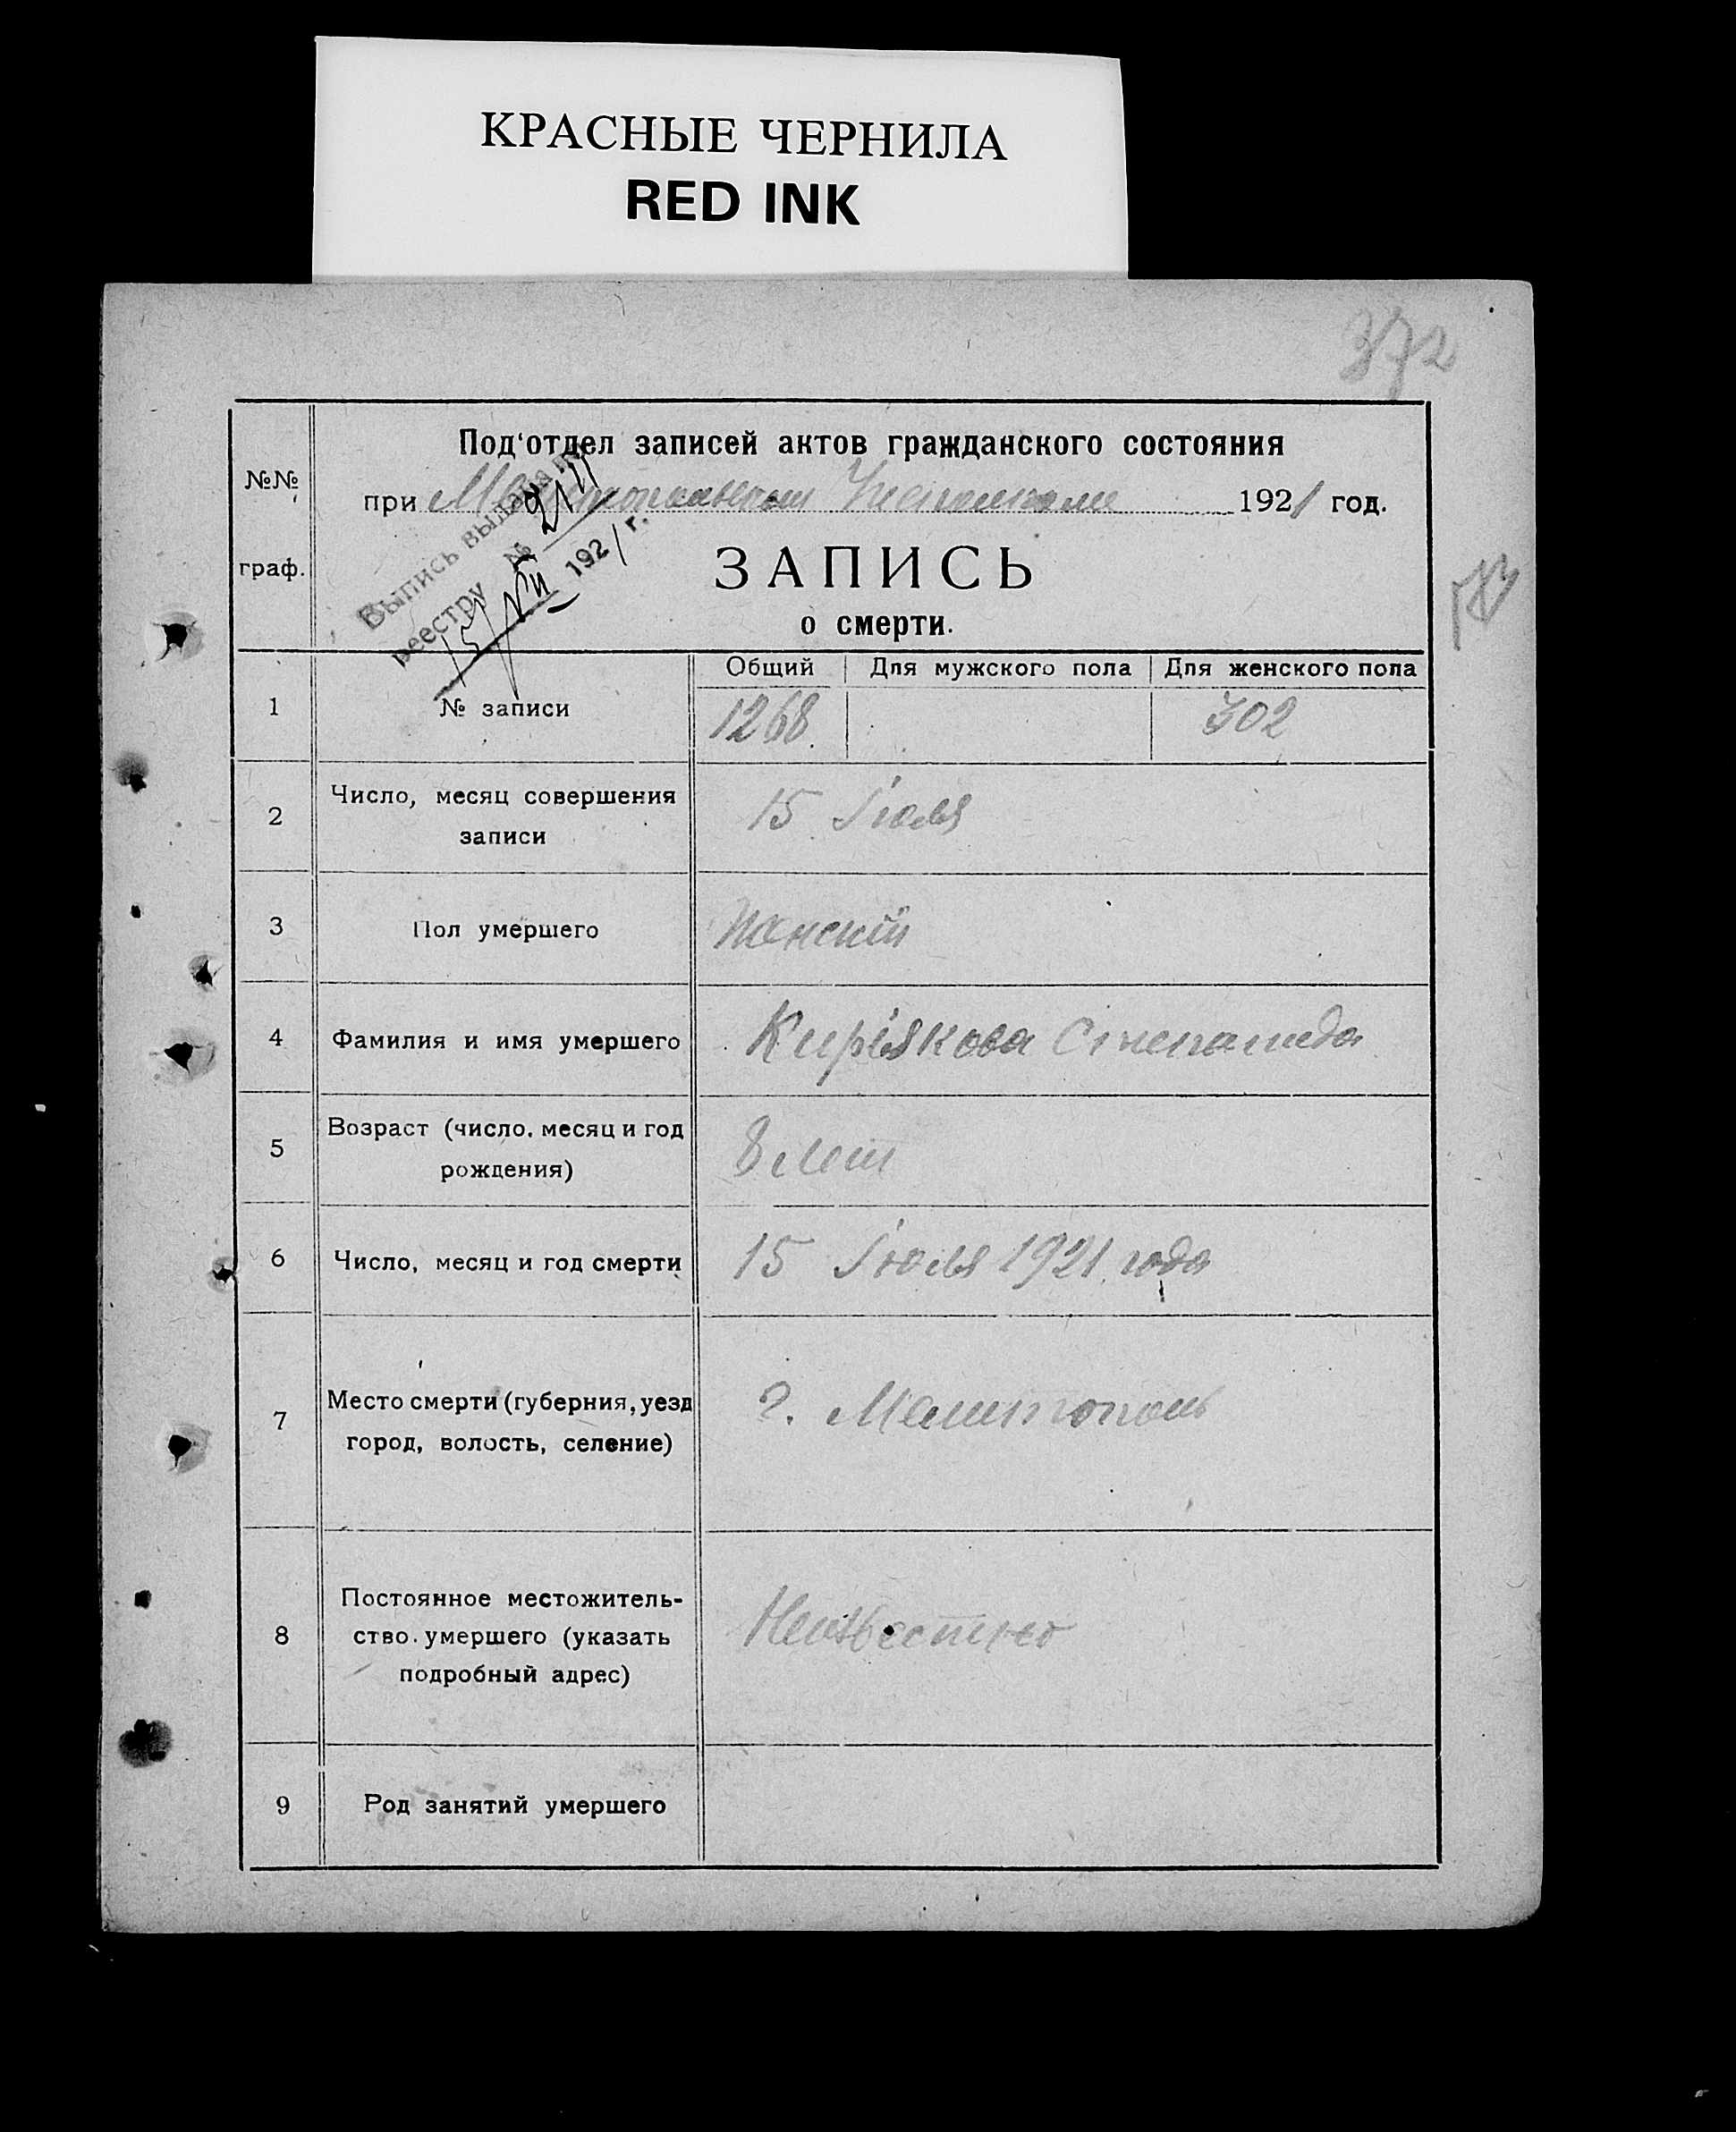 КРАСНЫЕ ЧЕРНИЛА
RED INK
372
№№
граф.
Под'отдел записей актов гражданского состояния
при Мелитопольском 1921 год.
Выпись выдана по
реестру №
15/VII 1921 г.
ЗАПИСЬ
о смерти.
Общий Для мужского пола Для женского пола
1 № записи 1268 302
2 Число, месяц совершения
записи
15 Іюля
3 Пол умершего Женский
4 Фамилия и имя умершего Киріякова Степанида
5 Возраст (число, месяц и год
рождения)
8 лет
6 Число, месяц и год смерти 15 Іюля 1921 года
7 Место смерти (губерния, уезд
город, волость, селение)
г. Мелитополь
8 Постоянное местожитель-
ство умершего (указать
подробный адрес)
Неизвестно
9 Род занятий умершего